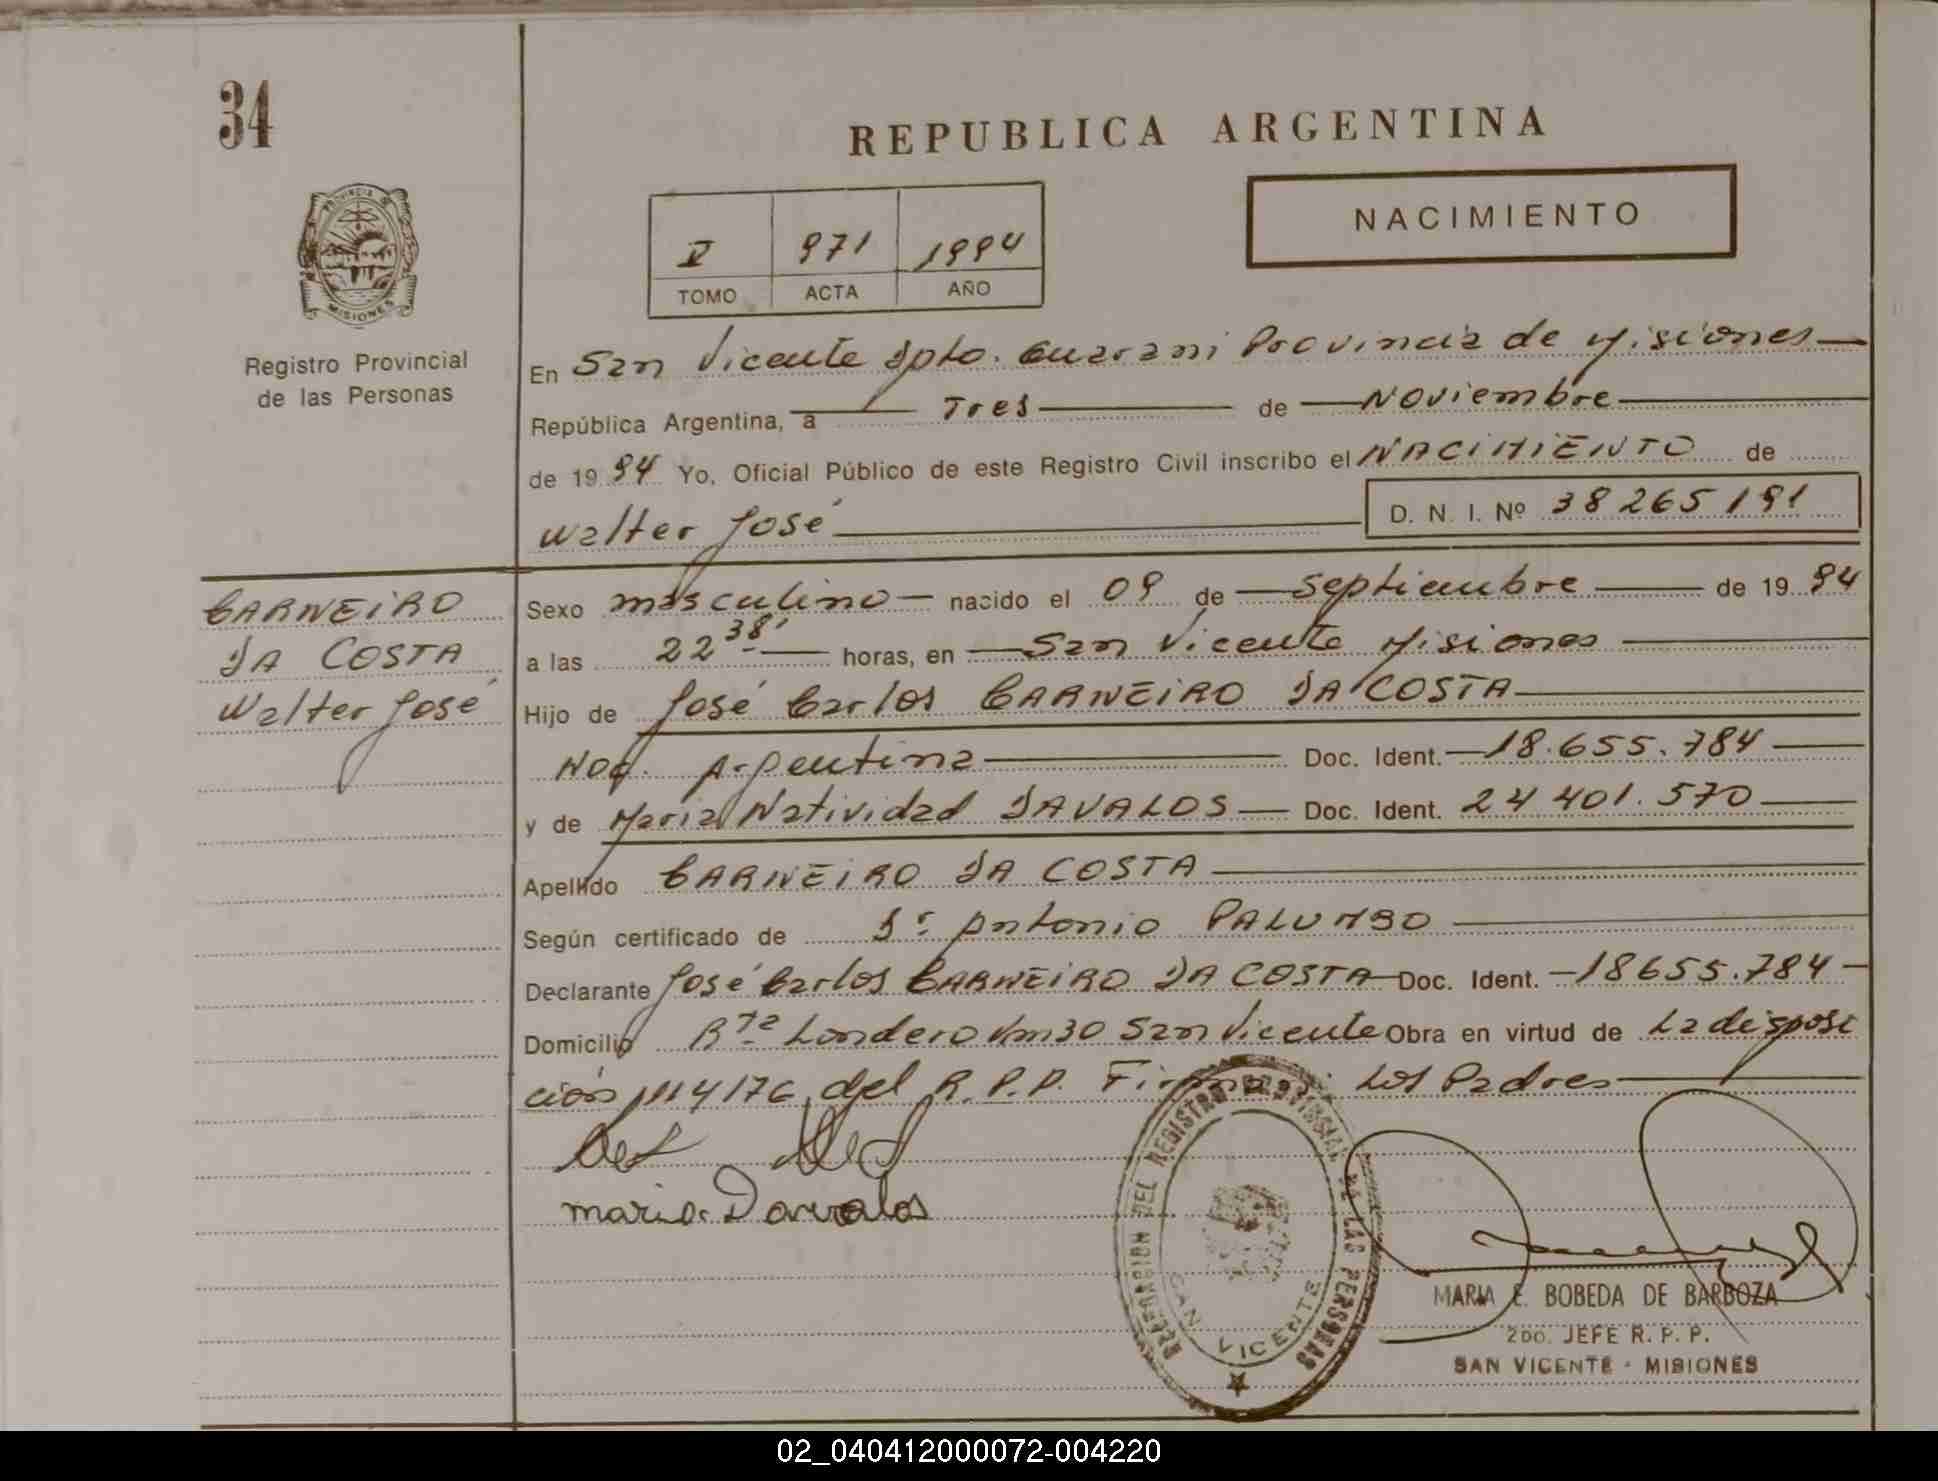 34
REPUBLICA ARGENTINA
PROVINCIA DE
MISIONES
NACIMIENTO
V 971 1994
TOMO ACTA AÑO
Registro Provincial
de las Personas
En San Vicente Dpto. Guarani Provincia de Misiones
República Argentina, a Tres de Noviembre
de 19 94 Yo, Oficial Público de este Registro Civil inscribo el NACIMIENTO de
Walter José D. N. I. Nº 38265191
CARNEIRO
DA COSTA
Walter José
Sexo masculino nacido el 09 de Septiembre de 19 94
a las 22 38' horas, en San Vicente Misiones
Hijo de José Carlos CARNEIRO DA COSTA
Nac. Argentina Doc. Ident. 18.655.784
y de Maria Natividad DAVALOS Doc. Ident. 24 401.570
Apellido CARNEIRO DA COSTA
Según certificado de Dr Antonio PALUMBO
Declarante José Carlos CARNEIRO DA COSTA Doc. Ident. 18655.784
Domicilio Londero Km30 San Vicente Obra en virtud de La disposi
ción 114/76 del R.P.P. Firman: Los Padres
maria Davalos
DEL REGISTRO PROVINCIAL DE LAS PERSONAS
SAN VICENTE
MARIA E. BOBEDA DE BARBOZA
2DO. JEFE R. P. P.
SAN VICENTE - MISIONES
02_040412000072-004220